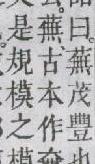 曰蕪茂豐也
蕪古本作
是規模之模